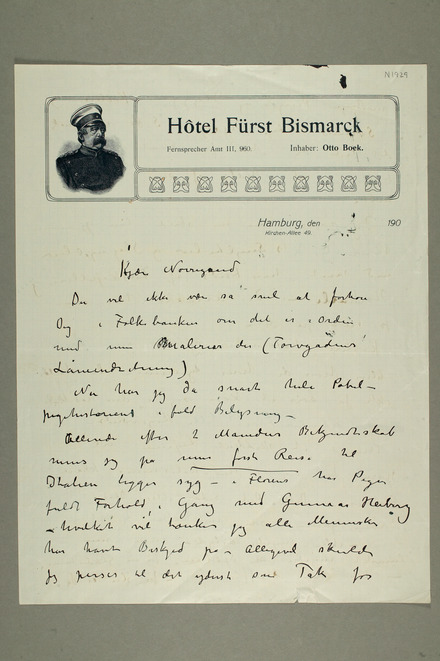 N1729
Hôtel Fürst Bismarck
Fernsprecher Amt III, 960. Inhaber: Otto Boek.
Hamburg, den 190
Kirchen-Allee 49.
Kjære Nørregaard
Du vil ikke være så snil at forhøre
Dig i Folkebanken om det er i Orden
med mine Malerier der (Torvgadens
Låneindretning)
Nu har jeg da snart hele
i fuld Belysning –
Allerede efter 2 Maaneders Bekjendtskab
mens jeg på min første Reise til
Italien ligger syg – i Florens har
fuldt Forhold i Gang med Gunnar Heiberg
– hvilket vil tænker jeg alle Mennesker
har havt Beskjed på – Alligevel skulde
jeg til det yderste som Tak for